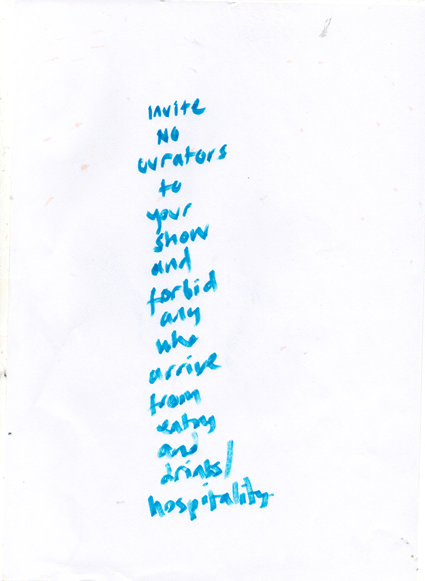 invite
No
curators
to
your
show
and
forbid
any
who
arrive
from
entry
and
drinks/
hospitality